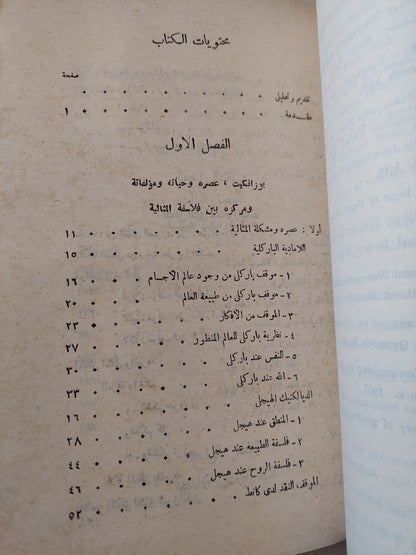 محتويات الكتاب
صفحة
تقديم وتحليل
مقدمة ١
الفصل الاول
بوزانكيت ، عصره وحياته ومؤلفاته
ومركزه بين فلاسفة المثالية
أولا : عصره ومشكلة المثالية ١١
اللامادية الباركلية ١٥
١ - موقف باركلى من وجود عالم الأجسام ١٦
٢ - موقف باركلى من طبيعة العالم ٢٠
٣ - الموقف من الأفكار ٢٣
٤ - نظرية باركلى للعالم المنظور ٢٧
٥ - النفس عند باركلى ٣٠
٦ - الله عند باركلى ٣٣
الديالكتيك الهيجلى ١٦
١ - المنطق عند هيجل ٢٨
٢ - فلسفة الطبيعة عند هيجل ٤٤
٣ - فلسفة الروح عند هيجل ٤٦
الموقف النقد لدى كانط ٥٢